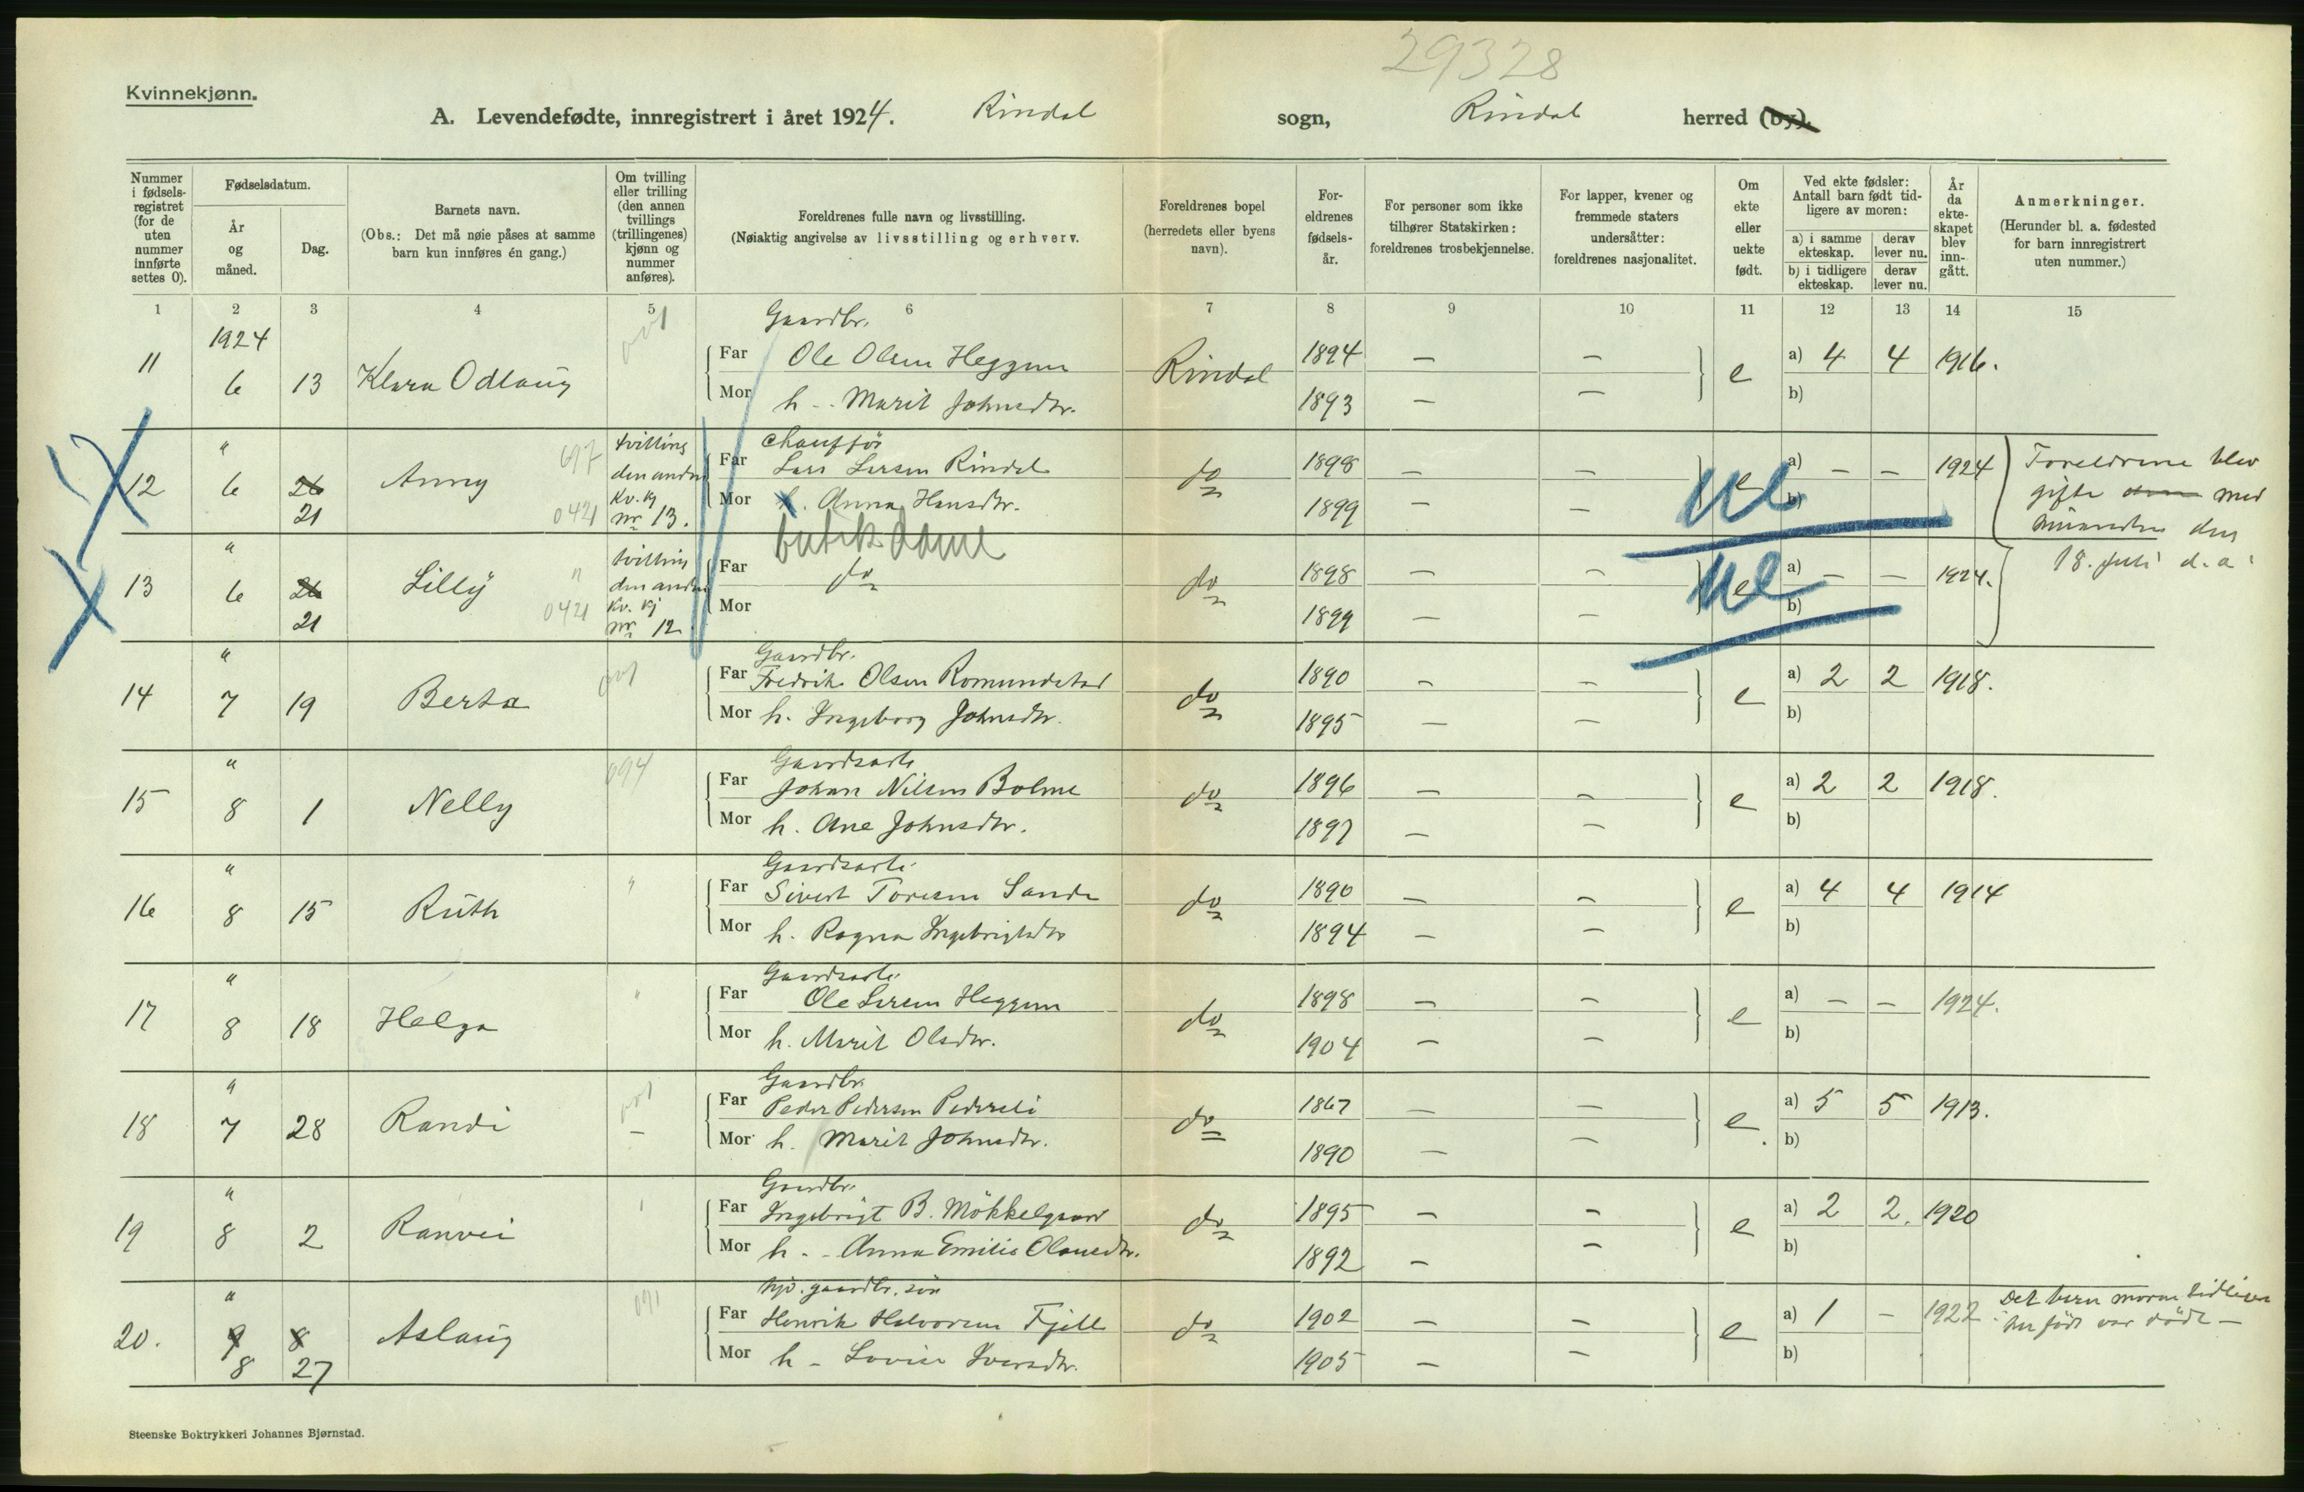 29328
Kvinnekjønn.
A. Levendefødte, innregistrert i året 1924. Rindal sogn, Rindal herred (by).
Nummer i fødselsregistret (for de uten nummer innførte settes 0).
Fødselsdatum.
År og måned.
Dag.
Barnets navn.
(Obs.: Det må nøie påses at samme barn kun innføres én gang.)
Om tvilling eller trilling (den annen tvillings (trillingenes) kjønn og nummer anføres).
Foreldrenes fulle navn og livsstilling.
(Nøiaktig angivelse av livsstilling og erhverv.
Foreldrenes bopel (herredets eller byens navn).
Foreldrenes fødselsår.
For personer som ikke tilhører Statskirken: foreldrenes trosbekjennelse.
For lapper, kvener og fremmede staters undersåtter: foreldrenes nasjonalitet.
Om ekte eller uekte født.
Ved ekte fødsler: Antall barn født tidligere av moren:
a) i samme ekteskap. derav lever nu.
b) i tidligere ekteskap. derav lever nu.
År da ekteskapet blev inngått.
Anmerkninger.
(Herunder bl. a. fødested for barn innregistrert uten nummer.)
1 2 3 4 5 6 7 8 9 10 11 12 13 14 15
1924 001 Gaardbr.
11 6 13 Klara Odlaug Far Ole Olsen Heggum Rindal 1894 — — e a) 4 4 1916.
Mor h. - Marit Johnsdtr. 1893 — — b)
" 697 tvilling den andre Kv. kj nr 13. Chauffør
12 6 26 21 Anny 0421 Far Lars Larsen Rindal do 1898 — — e ue a) — — 1924 Foreldrene blev
Mor h. Anna Hansdtr. 1899 — — b) gifte med
butikdame
hinanden den
18. juli d. a.
" tvilling den andre Kv. kj nr 12.
13 6 26 21 Lilly " 0421 Far do do 1898 — — e ue a) — — 1924.
Mor 1899 — — b)
" 001 Gaardbr.
14 7 19 Berta Far Fredrik Olsen Romundstad do 1890 — — e a) 2 2 1918.
Mor h. Ingeborg Johnsdtr. 1895 — — b)
" 094 Gaardsarb.
15 8 1 Nelly Far Johan Nilsen Bolme do 1896 — — e a) 2 2 1918.
Mor h. Ane Johnsdtr. 1897 — — b)
" " Gaardsarb.
16 8 15 Ruth Far Sivert Toresen Sande do 1890 — — e a) 4 4 1914
Mor h. Ragna Ingebrigtsdtr 1894 — — b)
" " Gaardsarb.
17 8 18 Helga Far Ole Larsen Heggum do 1898 — — e a) — — 1924.
Mor h. Marit Olsdtr. 1904 — — b)
" 001 Gaardbr.
18 7 28 Randi — Far Peder Pedersen Pederseli do 1867 — — e. a) 5 5 1913.
Mor h. Marit Johnsdtr. 1890 — — b)
" Gaardbr.
19 8 2 Ranvei Far Ingebrigt B. Møkkelgaard do 1895 — — e a) 2 2. 1920
Mor h. - Anna Emilie Olausdtr. 1892 — — b)
" 091 hjv. gaardbr. søn
20. 9 8 8 27 Aslaug Far Henrik Halvorsen Fjell do 1902 — — e a) 1 — 1922. Det barn moren tidligere
Mor h - Lovise Iversdtr. 1905 — — b) har født var dødf. —
Steenske Boktrykkeri Johannes Bjørnstad.